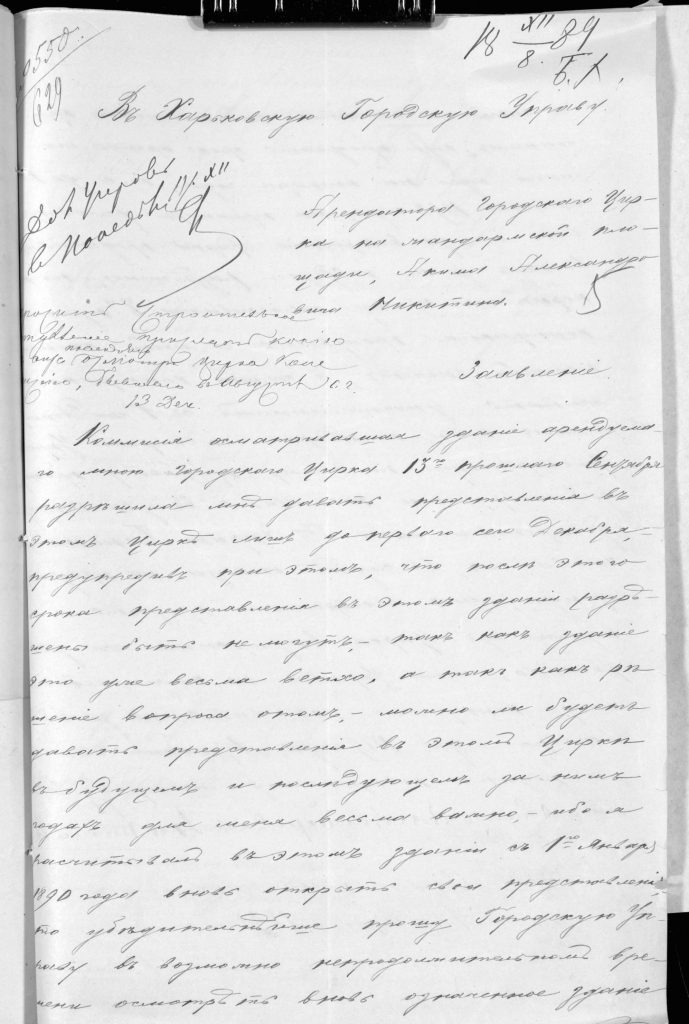 550
629
18 XII/8. 89
Въ Харьковскую Городскую Управу.
Арендатора Городскаго Цир-
ка на жандармской пло-
щади, Акима Александро
вича Никитина.
Строительное
копію
осмотра цирка
бывшаго въ Августѣ с. г.
13 Дек.
Заявленіе
Коммисія осматривавшая зданіе арендуема-
го мною Городскаго Цирка 13го прошлаго Сентября
разрѣшила мнѣ давать представленія въ
этомъ Циркѣ лишь до перваго сего Декабря,-
предупредивъ при этомъ, что послѣ этого
срока представленія въ этомъ зданіи разрѣ-
шены быть не могутъ,- такъ какъ зданіе
это уже весьма ветхо, а такъ какъ рѣ
шеніе вопроса отомъ,- можно ли будетъ
давать представленія въ этомъ Циркѣ
въ будущемъ и послѣдующемъ за нимъ
годахъ для меня весьма важно,- ибо я
расчитывалъ въ этомъ зданіи съ 1го Января
1890 года вновь открыть свои представленія,
то убѣдительнѣйше прошу Городскую Уп-
раву въ возможно непродолжительномъ вре-
мени осмотрѣть вновь означенное зданіе